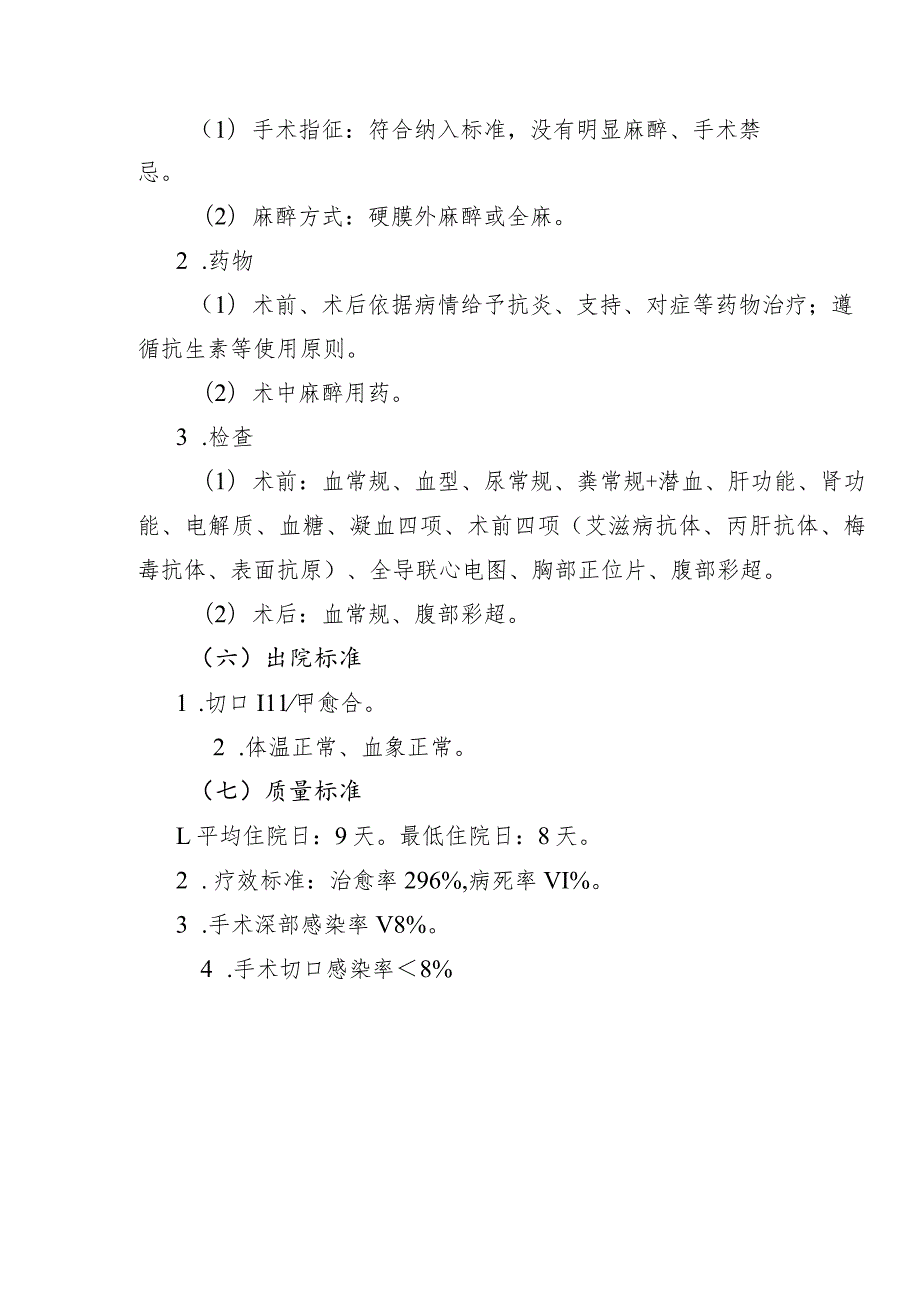 （1）手术指征：符合纳入标准，没有明显麻醉、手术禁
忌。
（2）麻醉方式：硬膜外麻醉或全麻。
2 .药物
（1）术前、术后依据病情给予抗炎、支持、对症等药物治疗；遵
循抗生素等使用原则。
（2）术中麻醉用药。
3 .检查
（1）术前：血常规、血型、尿常规、粪常规+潜血、肝功能、肾功
能、电解质、血糖、凝血四项、术前四项（艾滋病抗体、丙肝抗体、梅
毒抗体、表面抗原）、全导联心电图、胸部正位片、腹部彩超。
（2）术后：血常规、腹部彩超。
（六）出院标准
1 .切口 I11/甲愈合。
2 .体温正常、血象正常。
（七）质量标准
L 平均住院日：9 天。最低住院日：8 天。
2 . 疗效标准：治愈率 296%,病死率 VI%。
3 .手术深部感染率 V8%。
4 .手术切口感染率＜8%